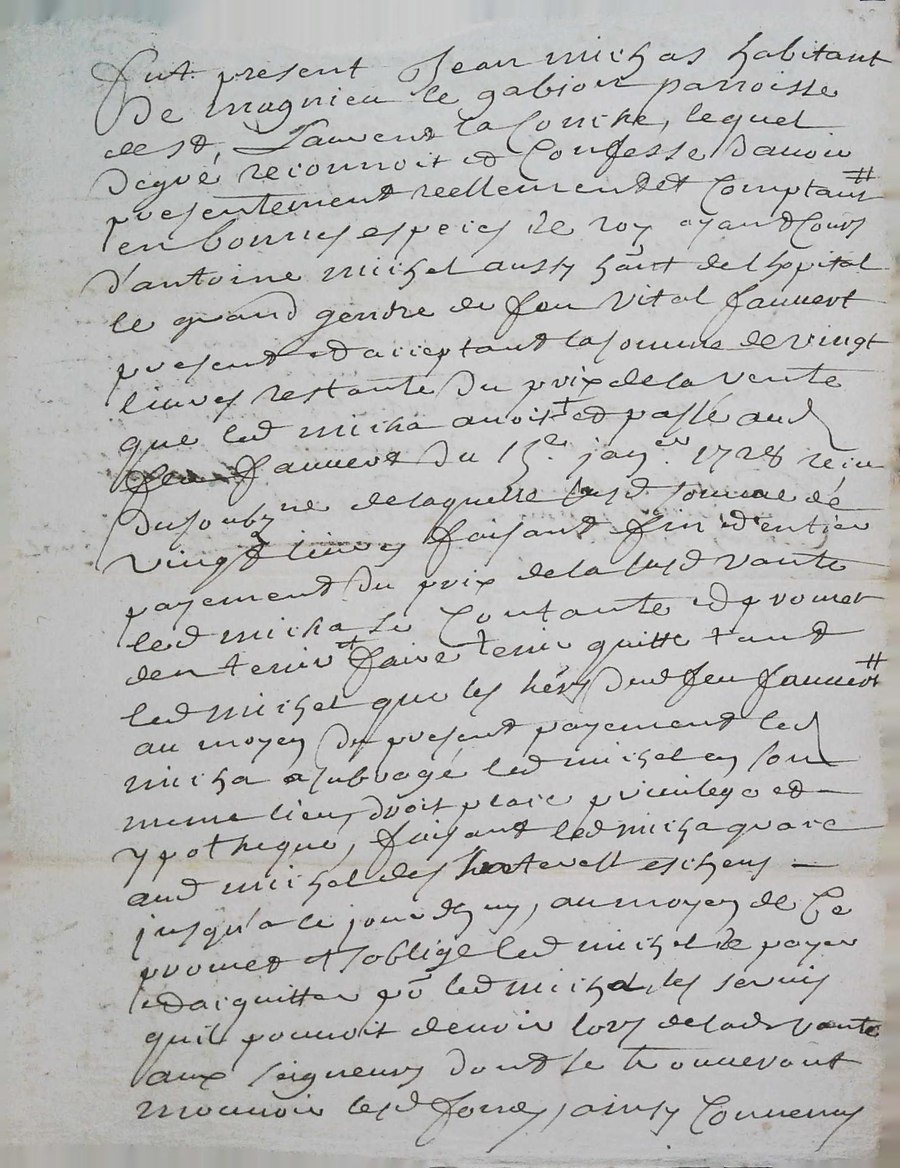 fut present Jean michas habitant
de magnieu le gabion parroisse
de st Laurent la Conche, lequel
degré reconnoit et Confesse d'auoir
presentement reellement et Comptant
en bonnes especes de roy ayant Cours
d'antoine michel aussy ha͠nt de l hopital
le grand gendre de feu Vital fauuert
present et acceptant la somme de vingt
liures restante du prix de la vente
que led micha auoit et passé aud
feu fauuert du 15e janer 1728 receu
du soubzne de laquelle susd somme de
vingt liures faisant fin et d'entier
payement du prix de la susd vante
led micha se Contante et promet
den tenir et faire tenir quitte tant
led michel que les hers dud feu fauuert
au moyen du present payement led
micha a subrogé led michel en son
meme lieu, droit place priuilege et
ypotheque, faisant led micha grace
aud michel des Interest escheus
jusqu'a ce jourdhuy, au moyen de Ce
promet et s'oblige led michel de payer
et dacquitter po͠ led micha les seruis
quil pouuoit deuoir lors de lad vante
aux seigneurs dont se trouueront
mouuoir lesd fonds, ainsy Conuenu